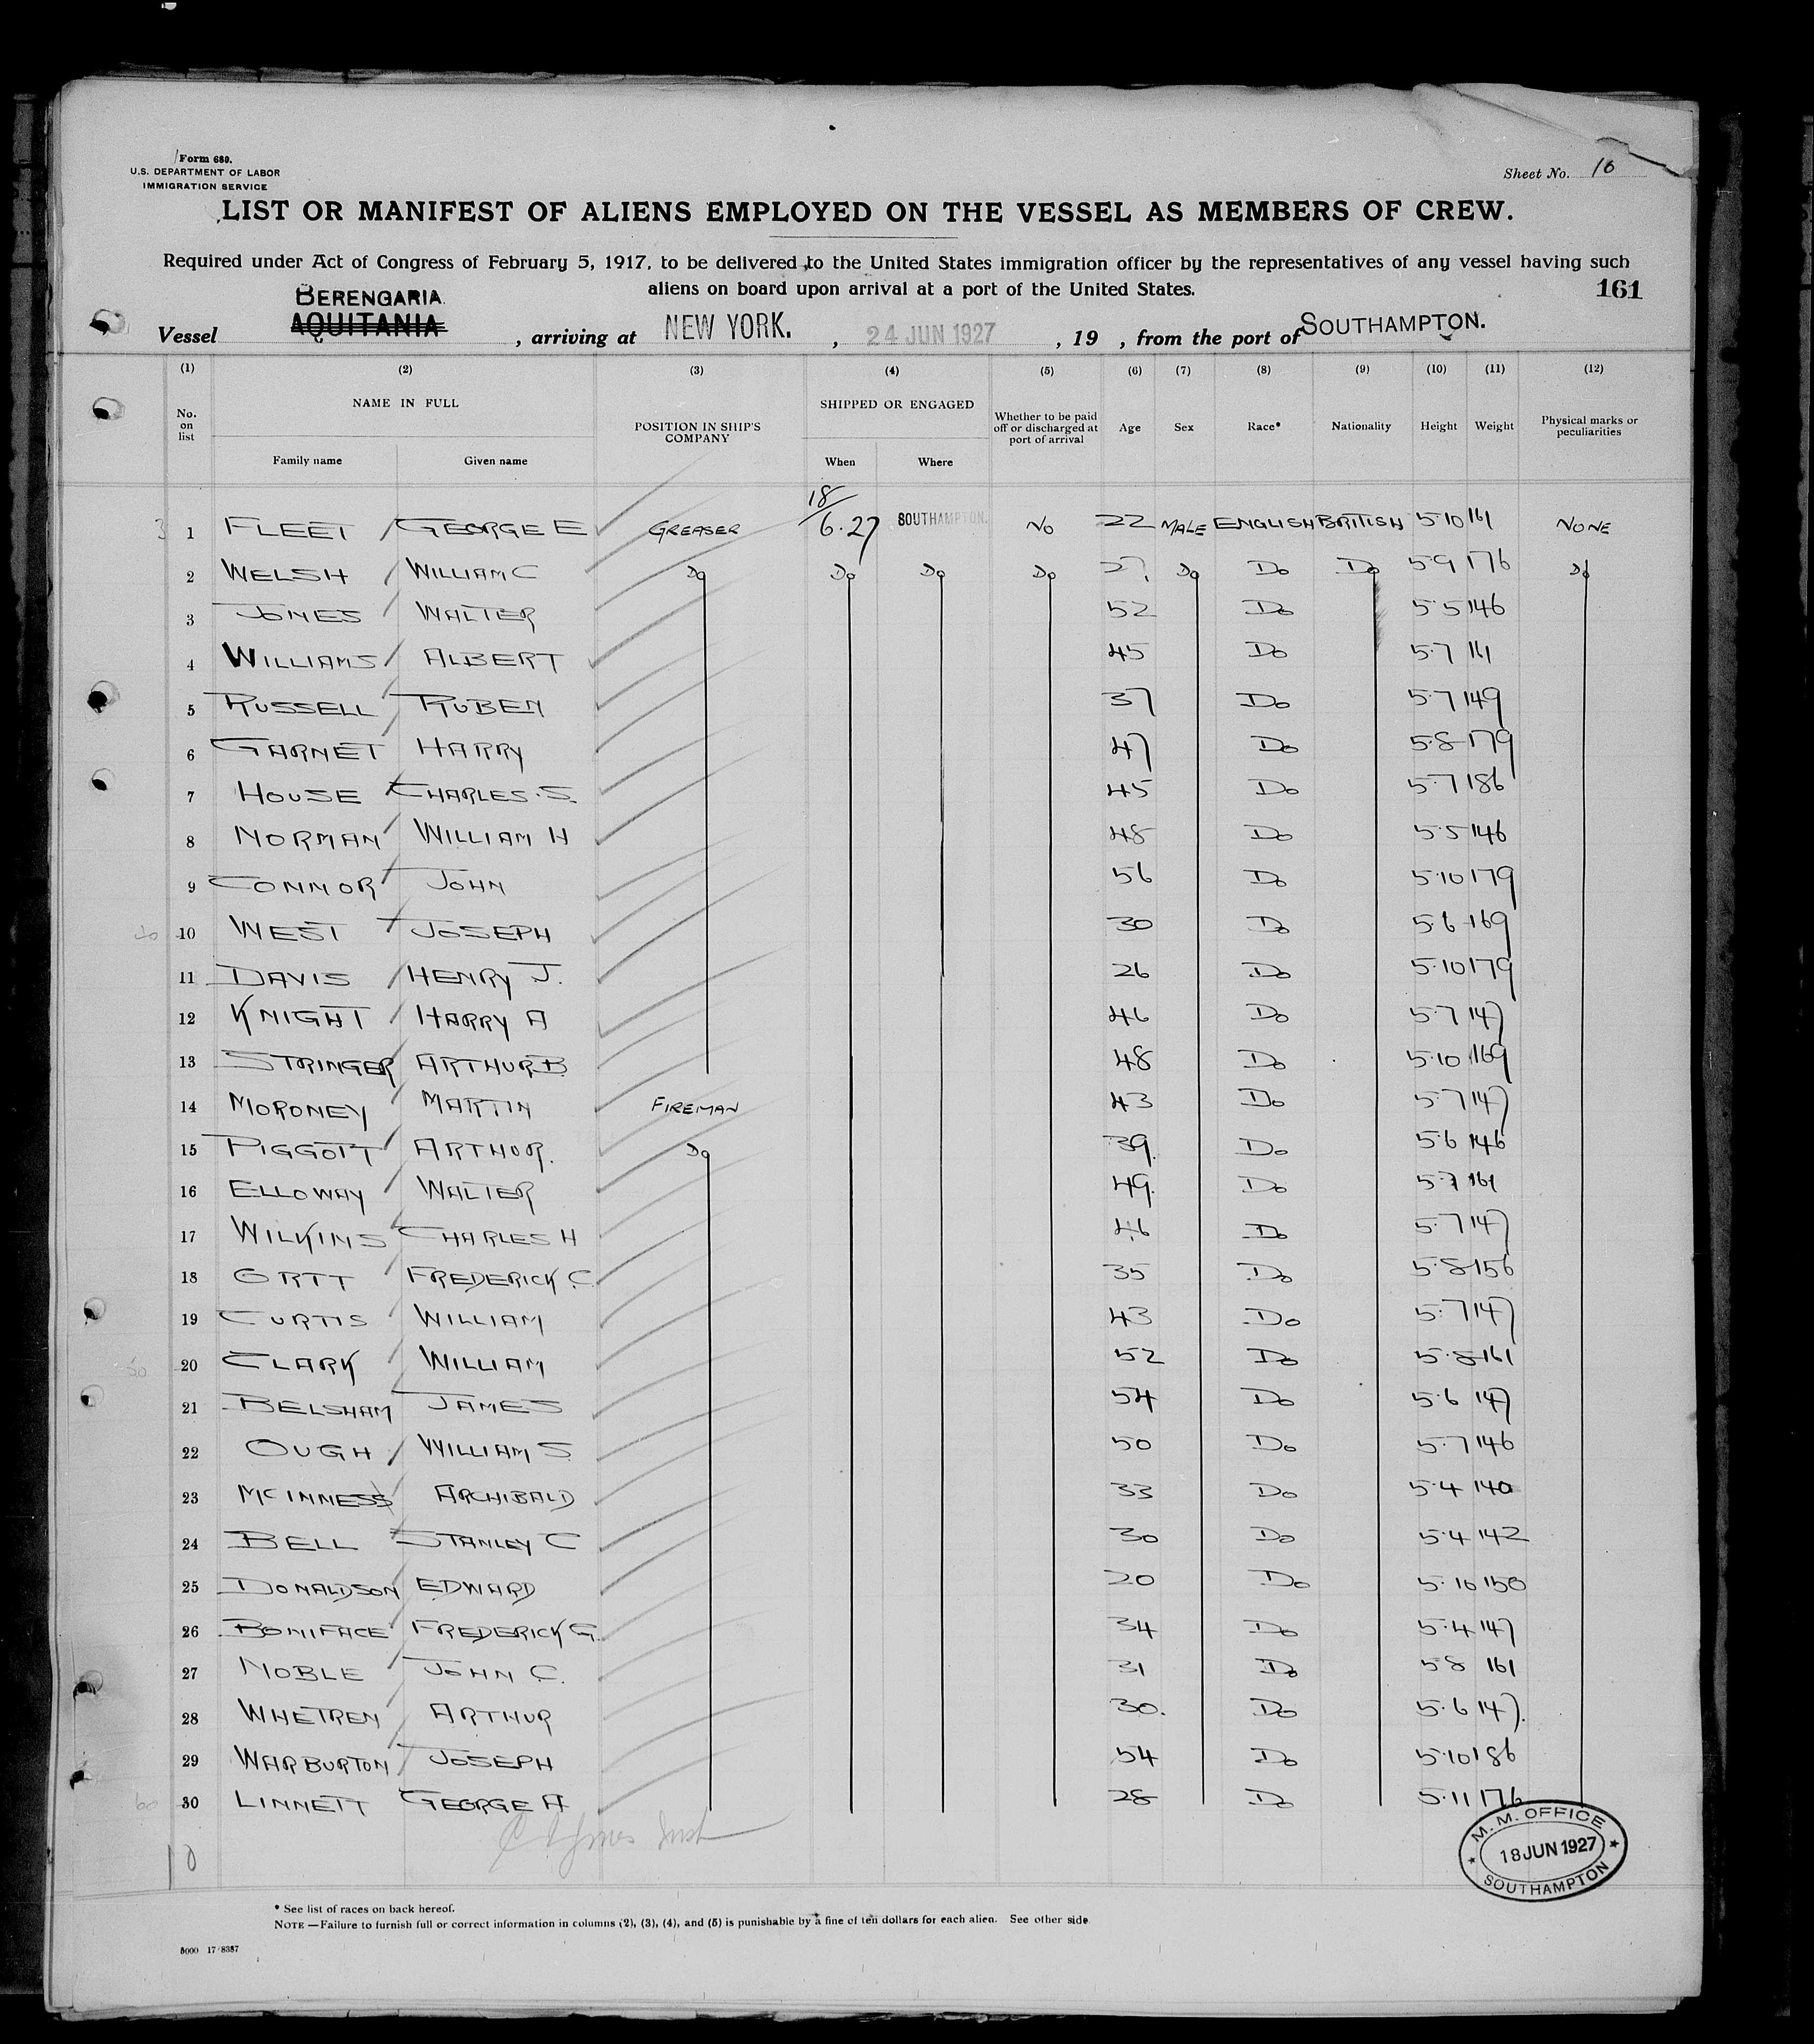 Form 680.
U.S. DEPARTMENT OF LABOR
IMMIGRATION SERVICE
Sheet No. 10
LIST OR MANIFEST OF ALIENS EMPLOYED ON THE VESSEL AS MEMBERS OF CREW.
Required under Act of Congress of February 5, 1917, to be delivered to the United States immigration officer by the representatives of any vessel having such
aliens on board upon arrival at a port of the United States.
161
BERENGARIA
Vessel AQUITANIA, arriving at NEW YORK., 24 JUN 1927, 19 , from the port of SOUTHAMPTON.
(1) (2) (3) (4) (5) (6) (7) (8) (9) (10) (11) (12)
No. on list NAME IN FULL POSITION IN SHIP'S COMPANY SHIPPED OR ENGAGED Whether to be paid off or discharged at port of arrival Age Sex Race* Nationality Height Weight Physical marks or peculiarities
Family name Given name When Where
1 FLEET GEORGE E GREASER 18/6.27 SOUTHAMPTON. NO 22 MALE ENGLISH BRITISH 5.10 161 NONE
2 WELSH WILLIAM C Do Do Do Do Do Do Do 5.9 176 Do
3 JONES WALTER 52 Do 5.5 146
4 WILLIAMS ALBERT 45 Do 5.7 161
5 RUSSELL RUBEN 37 Do 5.7 149
6 GARNET HARRY 47 Do 5.8 179
7 HOUSE CHARLES.S. 45 Do 5.7 186
8 NORMAN WILLIAM H 48 Do 5.5 146
9 CONNOR JOHN 56 Do 5.10 179
10 WEST JOSEPH 30 Do 5.6 169
11 DAVIS HENRY J. 26 Do 5.10 179
12 KNIGHT HARRY A 46 Do 5.7 147
13 STRINGER ARTHUR B. 48 Do 5.10 169
14 MORONEY MARTIN FIREMAN 43 Do 5.7 147
15 PIGGOTT ARTHUR. Do 39. Do 5.6 146
16 ELLOWAY WALTER 49. Do 5.7 161
17 WILKINS CHARLES H 46 Do 5.7 147
18 ORTT FREDERICK C. 35 Do 5.8 156
19 CURTIS WILLIAM 43 Do 5.7 147
20 CLARK WILLIAM 52 Do 5.8 161
21 BELSHAM JAMES 54 Do 5.6 147
22 OUGH WILLIAM S 50 Do 5.7 146
23 MCINNESS ARCHIBALD 33 Do 5.4 140
24 BELL STANLEY C 30 Do 5.4 142
25 DONALDSON EDWARD 20 Do 5.10 150
26 BONIFACE FREDERICK G. 34 Do 5.4 147
27 NOBLE JOHN C. 31 Do 5.8 161
28 WHETREN ARTHUR 30. Do 5.6 147.
29 WARBURTON JOSEPH 54 Do 5.10 186
30 LINNETT GEORGE A 28 Do 5.11 176
10
M. M. OFFICE
18 JUN 1927
SOUTHAMPTON
* See list of races on back hereof.
NOTE —Failure to furnish full or correct information in columns (2), (3), (4), and (5) is punishable by a fine of ten dollars for each alien. See other side
5000 17/8387